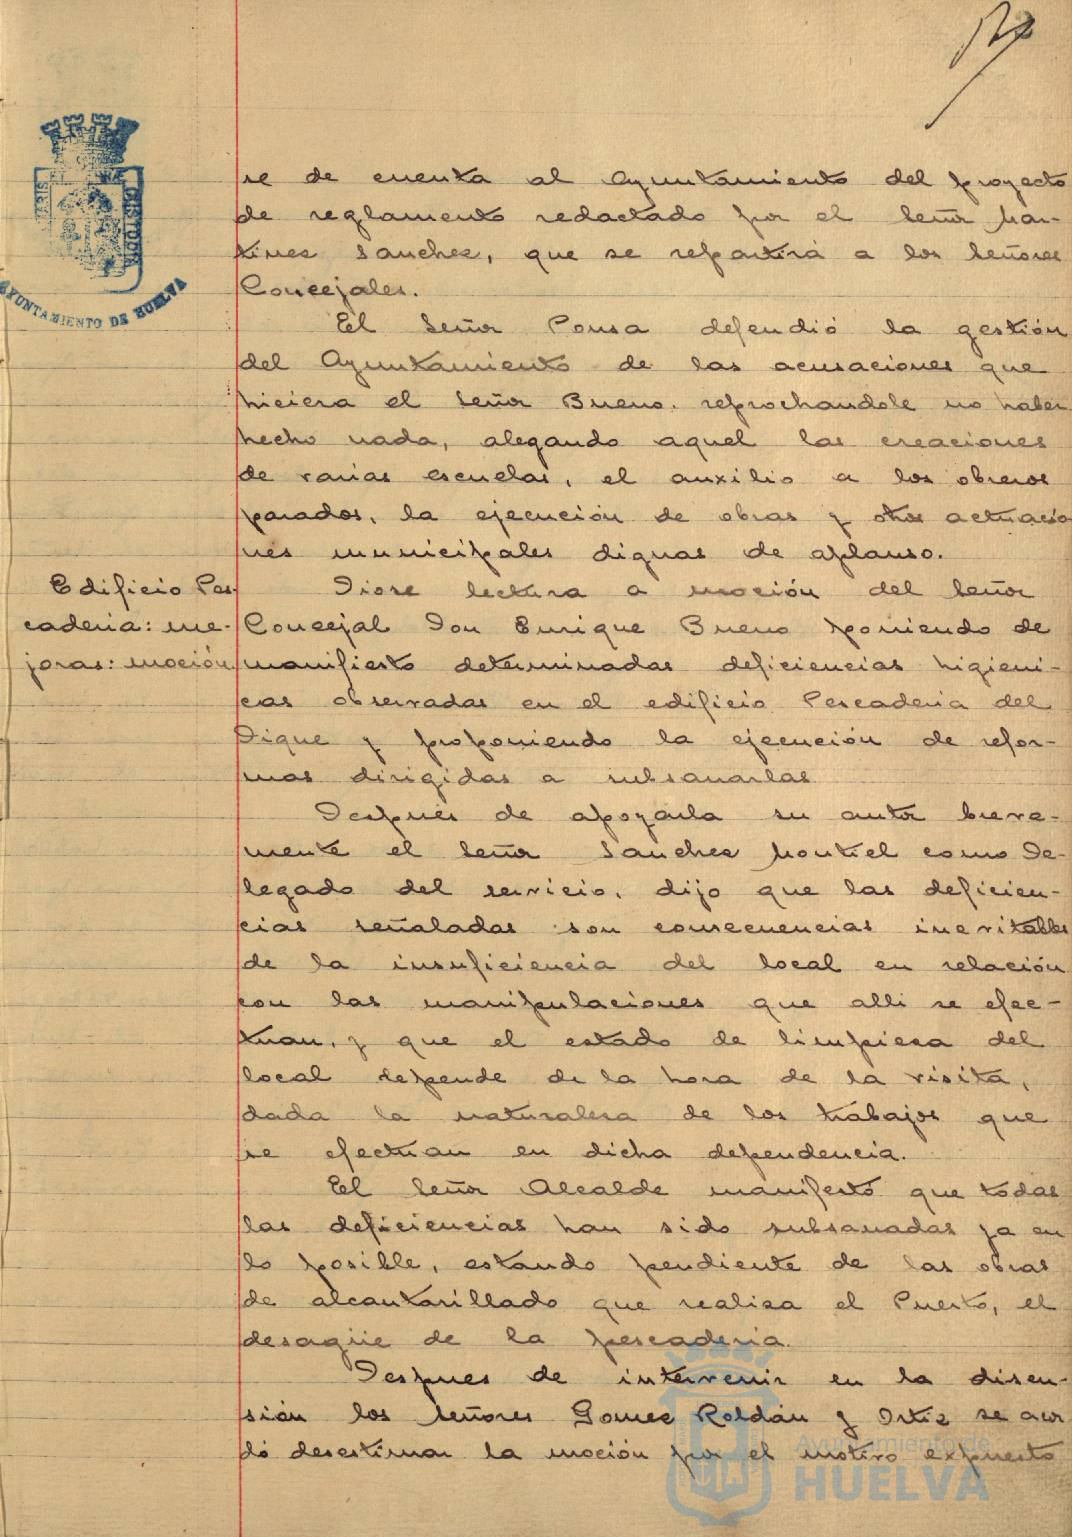 se de cuenta al Ayuntamiento del proyecto
de reglamento redactado por el Señor Mar-
tinez Sanchez, que se repartirá a los Señores
Concejales.
El Señor Ponsa defendió la gestión
del Ayuntamiento de las acusaciones que
hiciera el Señor Bueno, reprochandole no haber
hecho nada, alegando aquel las creaciones
de varias escuelas, el auxilio a los obreros
parados, la ejecución de obras y otras actuacio
nes municipales dignas de aplauso.
Edificio Pes-
caderia: me-
joras: moción
Diose lectura a moción del Señor
Concejal Don Enrique Bueno poniendo de
manifiesto determinadas deficiencias higieni-
cas observadas en el edificio Pescaderia del
Dique y proponiendo la ejecución de refor-
mas dirigidas a subsanarlas
Despues de apoyarla su autor breve-
mente el Señor Sanchez Montiel como De-
legado del servicio, dijo que las deficien-
cias señaladas son consecuencias inevitables
de la insuficiencia del local en relación
con las manipulaciones que alli se efec-
tuan, y que el estado de limpieza del
local depende de la hora de la visita,
dada la naturaleza de los trabajos que
se efectuan en dicha dependencia.
El Señor Alcalde manifestó que todas
las deficiencias han sido subsanadas ya en
lo posible, estando pendiente de las obras
de alcantarillado que realiza el Puerto, el
desagüe de la pescaderia.
Despues de intervenir en la discu-
sión los Señores Gomez Roldán y Ortiz se acor
dó desestimar la moción por el motivo expuesto
AYUNTAMIENTO DE HUELVA
Ayuntamiento de
HUELVA